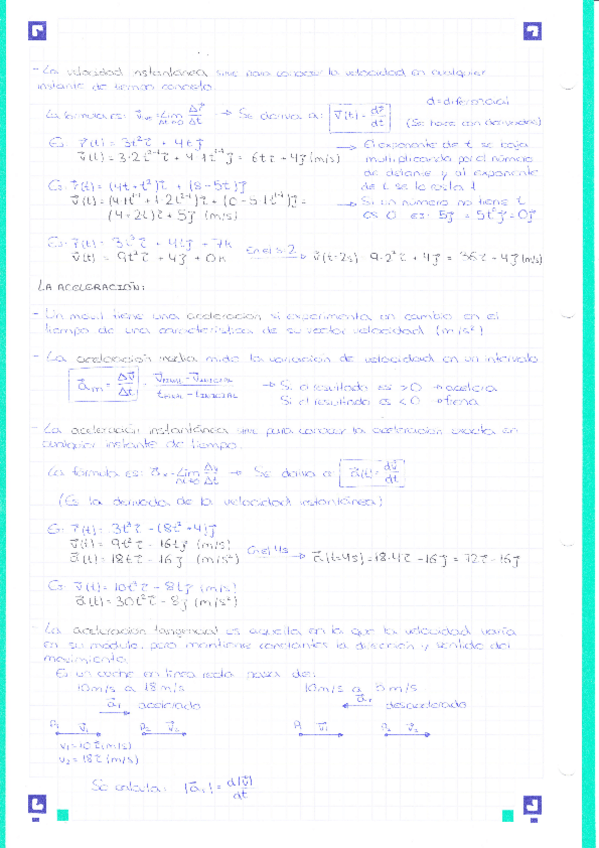 - La velocidad instantánea sirve para conocer la velocidad en cualquier
instante de tiempo concreto.
d = diferencial
La fórmula es: Lim Δt→0 Δr⃗/Δt → Se deriva a: v⃗(t) = dr⃗/dt (Se hace con derivadas)
Ej: r⃗(t) = 3t²i⃗ + 4tj⃗ → El exponente de t se baja
v⃗(t) = 3·2t²⁻¹i⃗ + 4·1t¹⁻¹j⃗ = 6ti⃗ + 4j⃗ (m/s) multiplicando por el número
de delante y al exponente
Ej: r⃗(t) = (4t + t²)i⃗ + (8 - 5t)j⃗ de t se le resta 1
→ Si un número no tiene t
(4 + 2t)i⃗ + 5j⃗ (m/s) es 0
Ej: r⃗(t) = 3t³i⃗ + 4tj⃗ + 7k
v⃗(t) = 9t²i⃗ + 4j⃗ + 0k → v⃗(t=2s) = 9·2²i⃗ + 4j⃗ = 36i⃗ + 4j⃗ (m/s)
LA ACELERACIÓN:
- Un móvil tiene una aceleración si experimenta un cambio en el
tiempo de una característica de su vector velocidad (m/s²)
- La aceleración media mide la variación de velocidad en un intervalo
a⃗m = Δv⃗/Δt = v⃗FINAL - v⃗INICIAL / tFINAL - tINICIAL → Si el resultado es > 0 → acelera
Si el resultado es < 0 → frena
- La aceleración instantánea sirve para conocer la aceleración exacta en
cualquier instante de tiempo.
La fórmula es: Lim Δt→0 Δv⃗/Δt → Se deriva a: a⃗(t) = dv⃗/dt
(Es la derivada de la velocidad instantánea)
Ej: r⃗(t) = 3t³i⃗ - (8t² + 4)j⃗
v⃗(t) = 9t²i⃗ - 16tj⃗ (m/s)
a⃗(t) = 18ti⃗ - 16j⃗ (m/s²) → a⃗(t=4s) = 18·4i⃗ - 16j⃗ = 72i⃗ - 16j⃗
Ej: v⃗(t) = 10t³i⃗ - 8tj⃗ (m/s)
a⃗(t) = 30t²i⃗ - 8j⃗ (m/s²)
- La aceleración tangencial es aquella en la que la velocidad varía
en su módulo, pero mantiene constantes la dirección y sentido del
movimiento.
Ej: un coche en línea recta pasa de:
10m/s a 18m/s 10m/s a 5m/s
a⃗t acelerado a⃗t desacelerado
P₁ v⃗₁ P₂ v⃗₂ P₁ v⃗₁ P₂ v⃗₂
v₁ = 10i⃗ (m/s)
v₂ = 18i⃗ (m/s)
Se calcula: |a⃗t| = d|v⃗|/dt